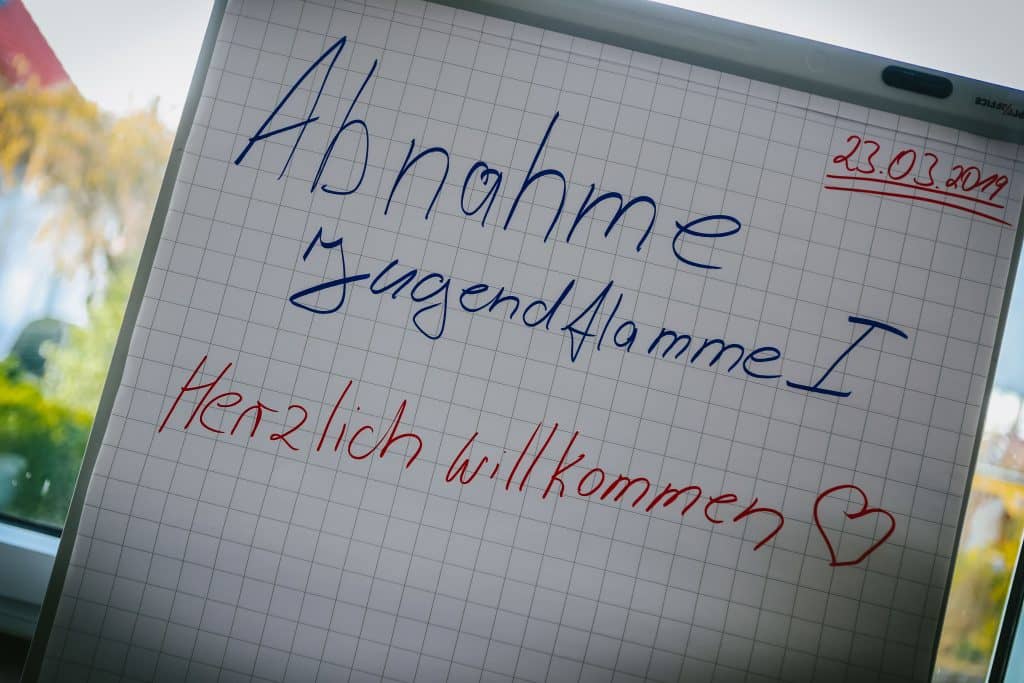 23.03.2019
Abnahme
Jugendflamme I
Herzlich willkommen ♡